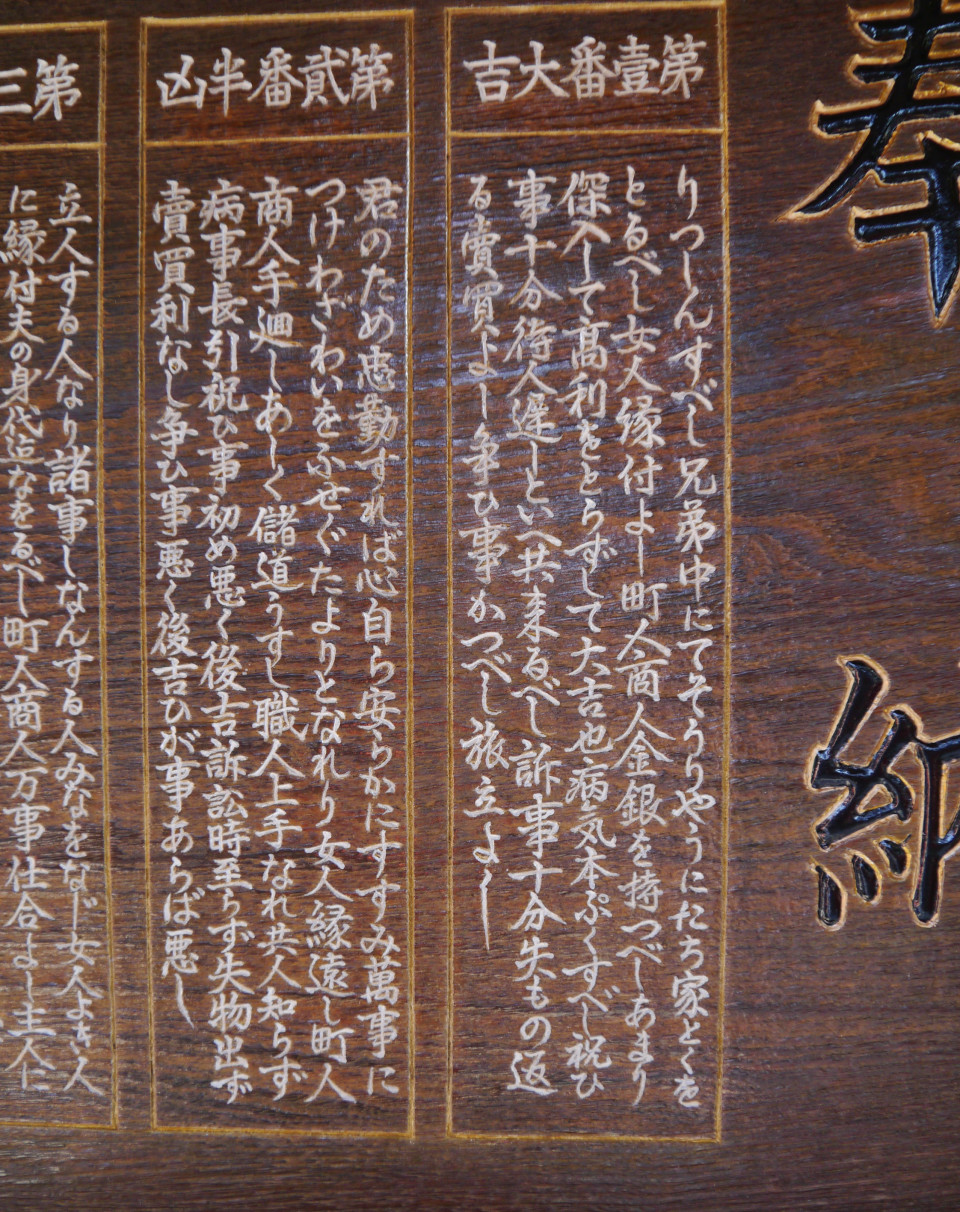 奉納
第壹番大吉
りつしんすべし兄弟中にてそうりやうにたち家とくを
とるべし女人縁付よし町人商人金銀を持つべしあまり
保へして高利をとらずして大吉也病気本ぷくすべし祝ひ
事十分待人遅しといへ共来るべし訴事十分失もの返
る賣買よし争ひ事かつべし旅立よし
第貳番半凶
君のため忠勤すれば心自ら安らかにすすみ萬事に
つけわざわいをふせぐたよりとなれり女人縁遠し町人
商人手廻しあしく儲道うすし職人上手なれ共人知らず
病事長引祝ひ事初め悪く後吉訴訟時至らず失物出ず
賣買利なし争ひ事悪く後吉ひが事あらば悪し
第三
立人する人なり諸事しなんする人みなをなじ女人よき人
に縁付夫の身代になをるべし町人商人万事仕合よし主